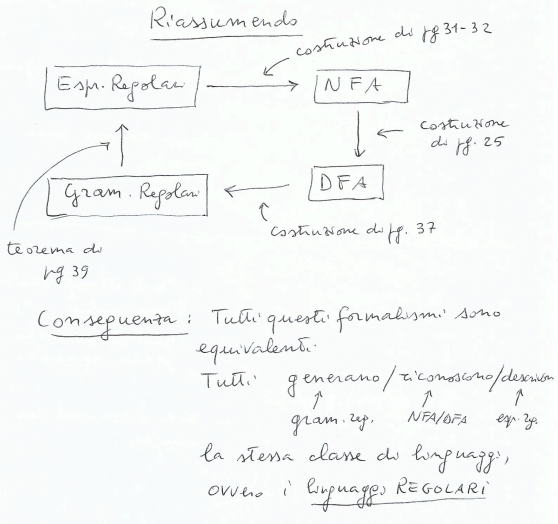 Riassumendo
costruzione di pg 31-32
Espr. Regolari
NFA
costruzione
di pg. 25
Gram. Regolari
DFA
costruzione di pg. 37
teorema di
pg 39
Conseguenza: Tutti questi formalismi sono
equivalenti.
Tutti generano/riconoscono/descrivon
gram. reg. NFA/DFA espr. rg.
la stessa classe di linguaggi,
ovvero i linguaggi REGOLARI